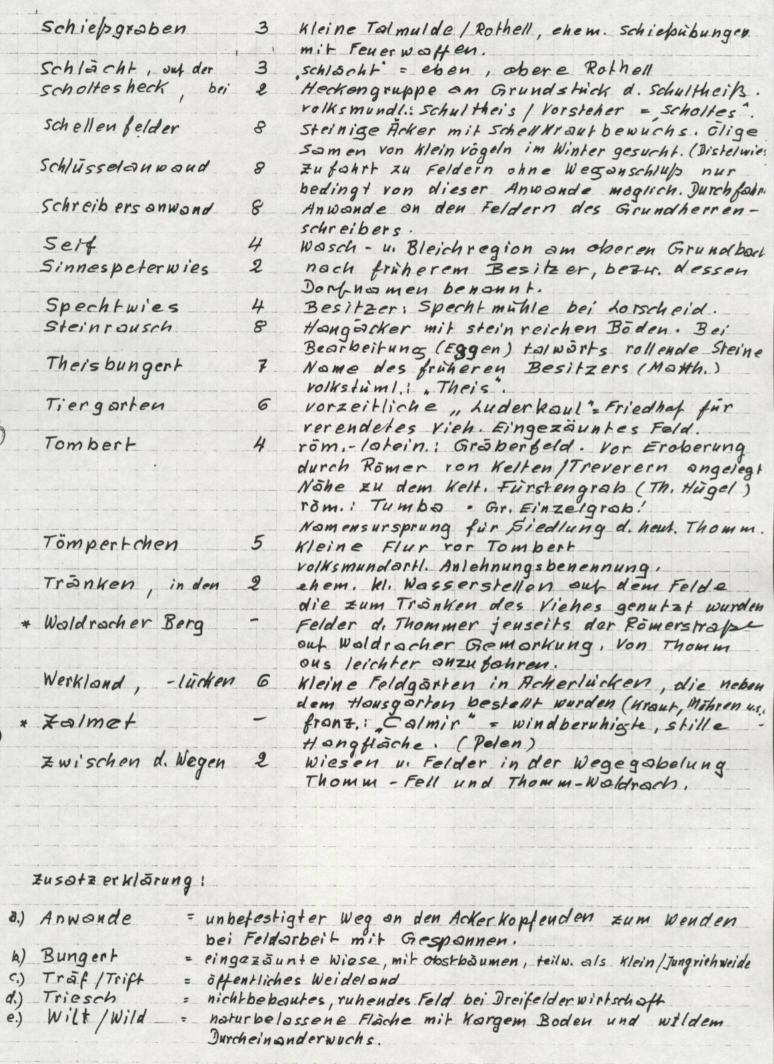 Schießgraben 3 Kleine Talmulde / Rothell, ehem. Schießübungen
mit Feuerwaffen.
Schlächt, auf der 3 „schlächt" = eben, obere Rothell
Scholtesheck, bei 2 Heckengruppe am Grundstück d. Schultheiß.
volksmundl.: Schultheis / Vorsteher = „Scholtes".
Schellenfelder 8 Steinige Äcker mit Schellkrautbewuchs. Ölige
Samen von Kleinvögeln im Winter gesucht. (Distelwies
Schlüsselanwand 8 Zufahrt zu Feldern ohne Weganschluß nur
bedingt von dieser Anwande möglich. Durchfahr
Schreibersanwand 8 Anwande an den Feldern des Grundherren-
schreibers.
Seif 4 Wasch- u. Bleichregion am oberen Grundbach
Sinnespeterwies 2 nach früherem Besitzer, bezw. dessen
Dorfnamen benannt.
Spechtwies 4 Besitzer: Spechtmühle bei Lorscheid.
Steinrausch 8 Hangäcker mit steinreichen Böden. Bei
Bearbeitung (Eggen) talwärts rollende Steine
Theisbungert 7 Name des früheren Besitzers (Matth.)
volkstüml.: „Theis".
Tiergarten 6 vorzeitliche „Luderkaul" = Friedhof für
verendetes Vieh. Eingezäuntes Feld.
Tombert 4 röm.-latein.: Gräberfeld. Vor Eroberung
durch Römer von Kelten/Treverern angelegt
Nähe zu dem Kelt. Fürstengrab (Th. Hügel)
röm.: Tumba • Gr. Einzelgrab!
Namensursprung für Siedlung d. heut. Thomm.
Tömpertchen 5 Kleine Flur vor Tombert
volksmundartl. Anlehnungsbenennung.
Tränken, in den 2 ehem. kl. Wasserstellen auf dem Felde
die zum Tränken des Viehes genutzt wurden
* Waldracher Berg - Felder d. Thommer jenseits der Römerstraße
auf Waldracher Gemarkung. Von Thomm
aus leichter anzufahren.
Werkland, -lücken 6 kleine Feldgärten in Ackerlücken, die neben
dem Hausgarten bestellt wurden (Kraut, Möhren us.
* Zalmet - franz.: „Calmir" = windberuhigte, stille
Hangfläche. (Pelen)
Zwischen d. Wegen 2 Wiesen u. Felder in der Wegegabelung
Thomm - Fell und Thomm-Waldrach.
Zusatzerklärung:
a.) Anwande = unbefestigter Weg an den Ackerkopfenden zum Wenden
bei Feldarbeit mit Gespannen.
b.) Bungert = eingezäunte Wiese, mit Obstbäumen, teilw. als Klein/Jungviehweide
c.) Träf / Trift = öffentliches Weideland
d.) Triesch = nichtbebautes, ruhendes Feld bei Dreifelderwirtschaft
e.) Wilt / Wild = naturbelassene Fläche mit kargem Boden und wildem
Durcheinanderwuchs.